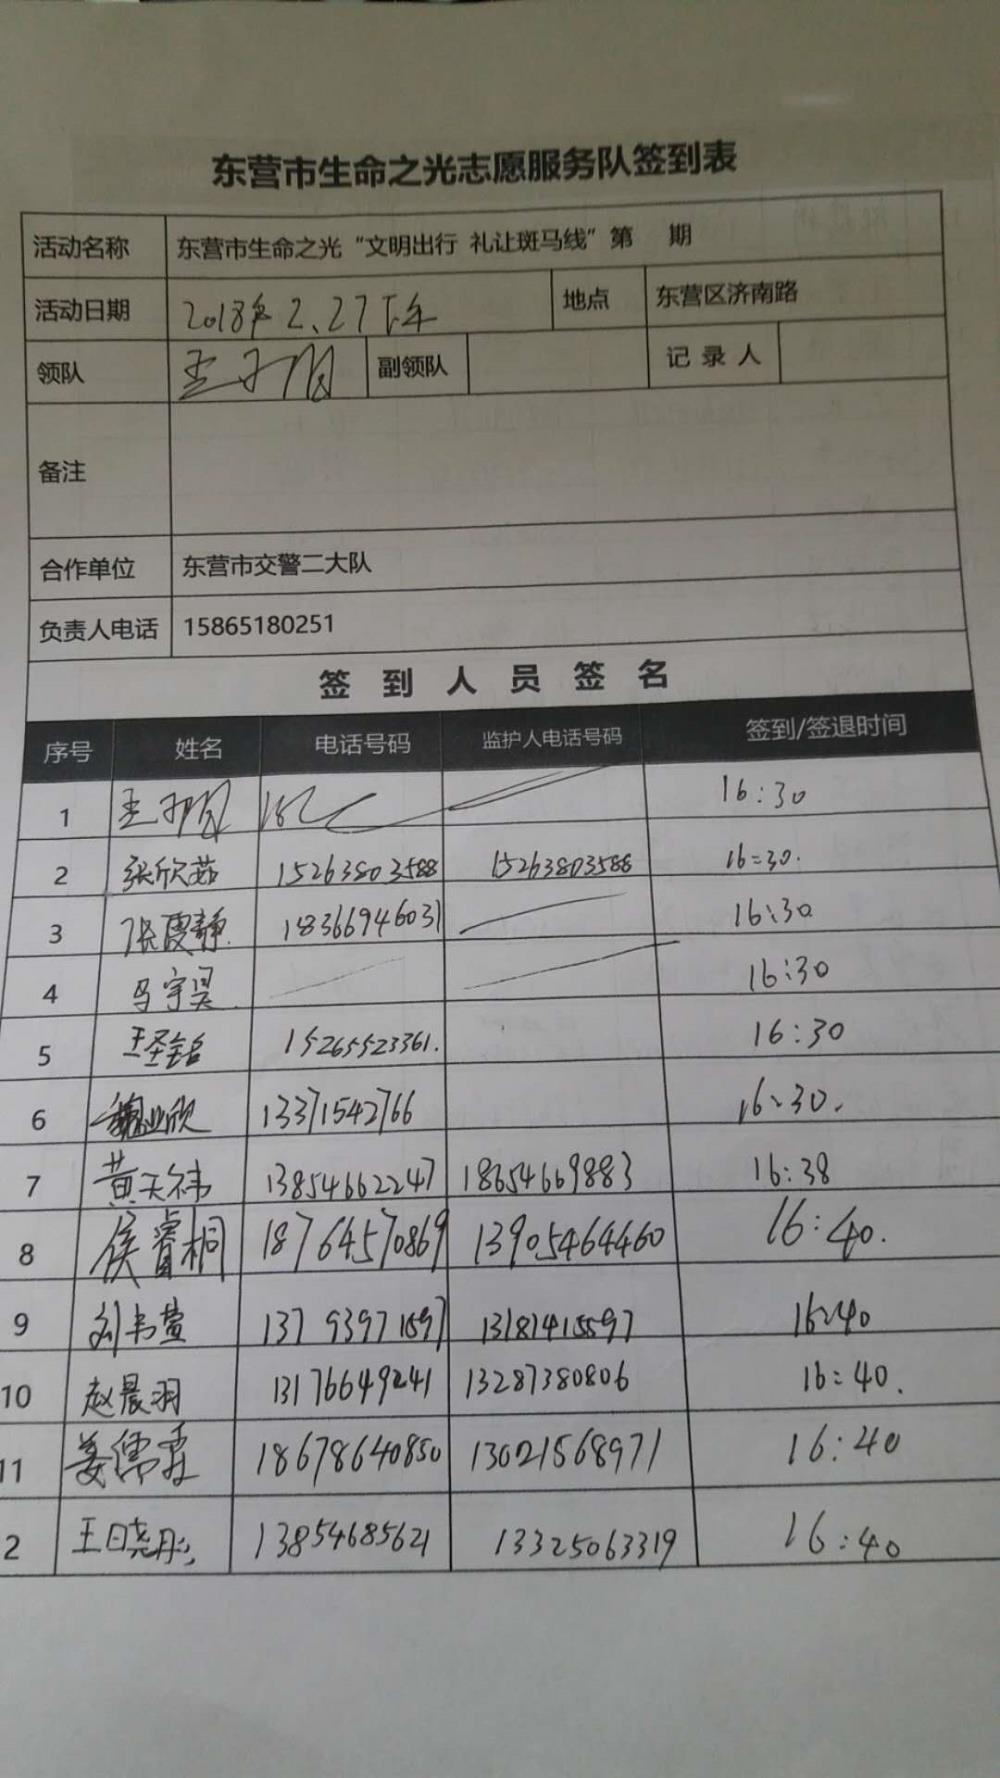 东营市生命之光志愿服务队签到表
活动名称 东营市生命之光“文明出行 礼让斑马线”第 期
活动日期 2018年2.27下午 地点 东营区济南路
领队 副领队 记录人
备注
合作单位 东营市交警二大队
负责人电话 15865180251
签到人员签名
序号 姓名 电话号码 监护人电话号码 签到/签退时间
1 16:30
2 张欣茹 15263803588 15263803588 16:30.
3 张霞静. 18366946031 16:30
4 马宇昊. 16:30
5 王圣铭 15265523361. 16:30
6 魏业欣 13371542766 16:30.
7 黄天祎 13854662247 18654669883 16:38
8 侯睿桐 18764570869 13905464460 16:40.
9 刘书萱 13793971597 13181415597 16:40
10 赵晨羽 13176649241 13287380806 16:40.
11 姜儒 18678640850 13021568971 16:40
2 王晓彤 13854685621 13325063319 16:40